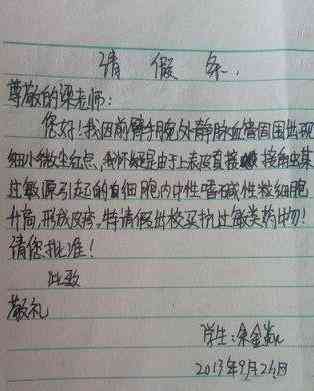 请假条
尊敬的梁老师：
您好！我因前臂手腕外静脉血管周围出现
细小微尘红点，我怀疑是由于上表皮直接接触出某
过敏源引起的白细胞内中性嗜碱性粒细胞
升高，形成皮疹，特请假出校买抗过敏类药物！
请您批准！
此致
敬礼
学生：余金
2013年9月26日